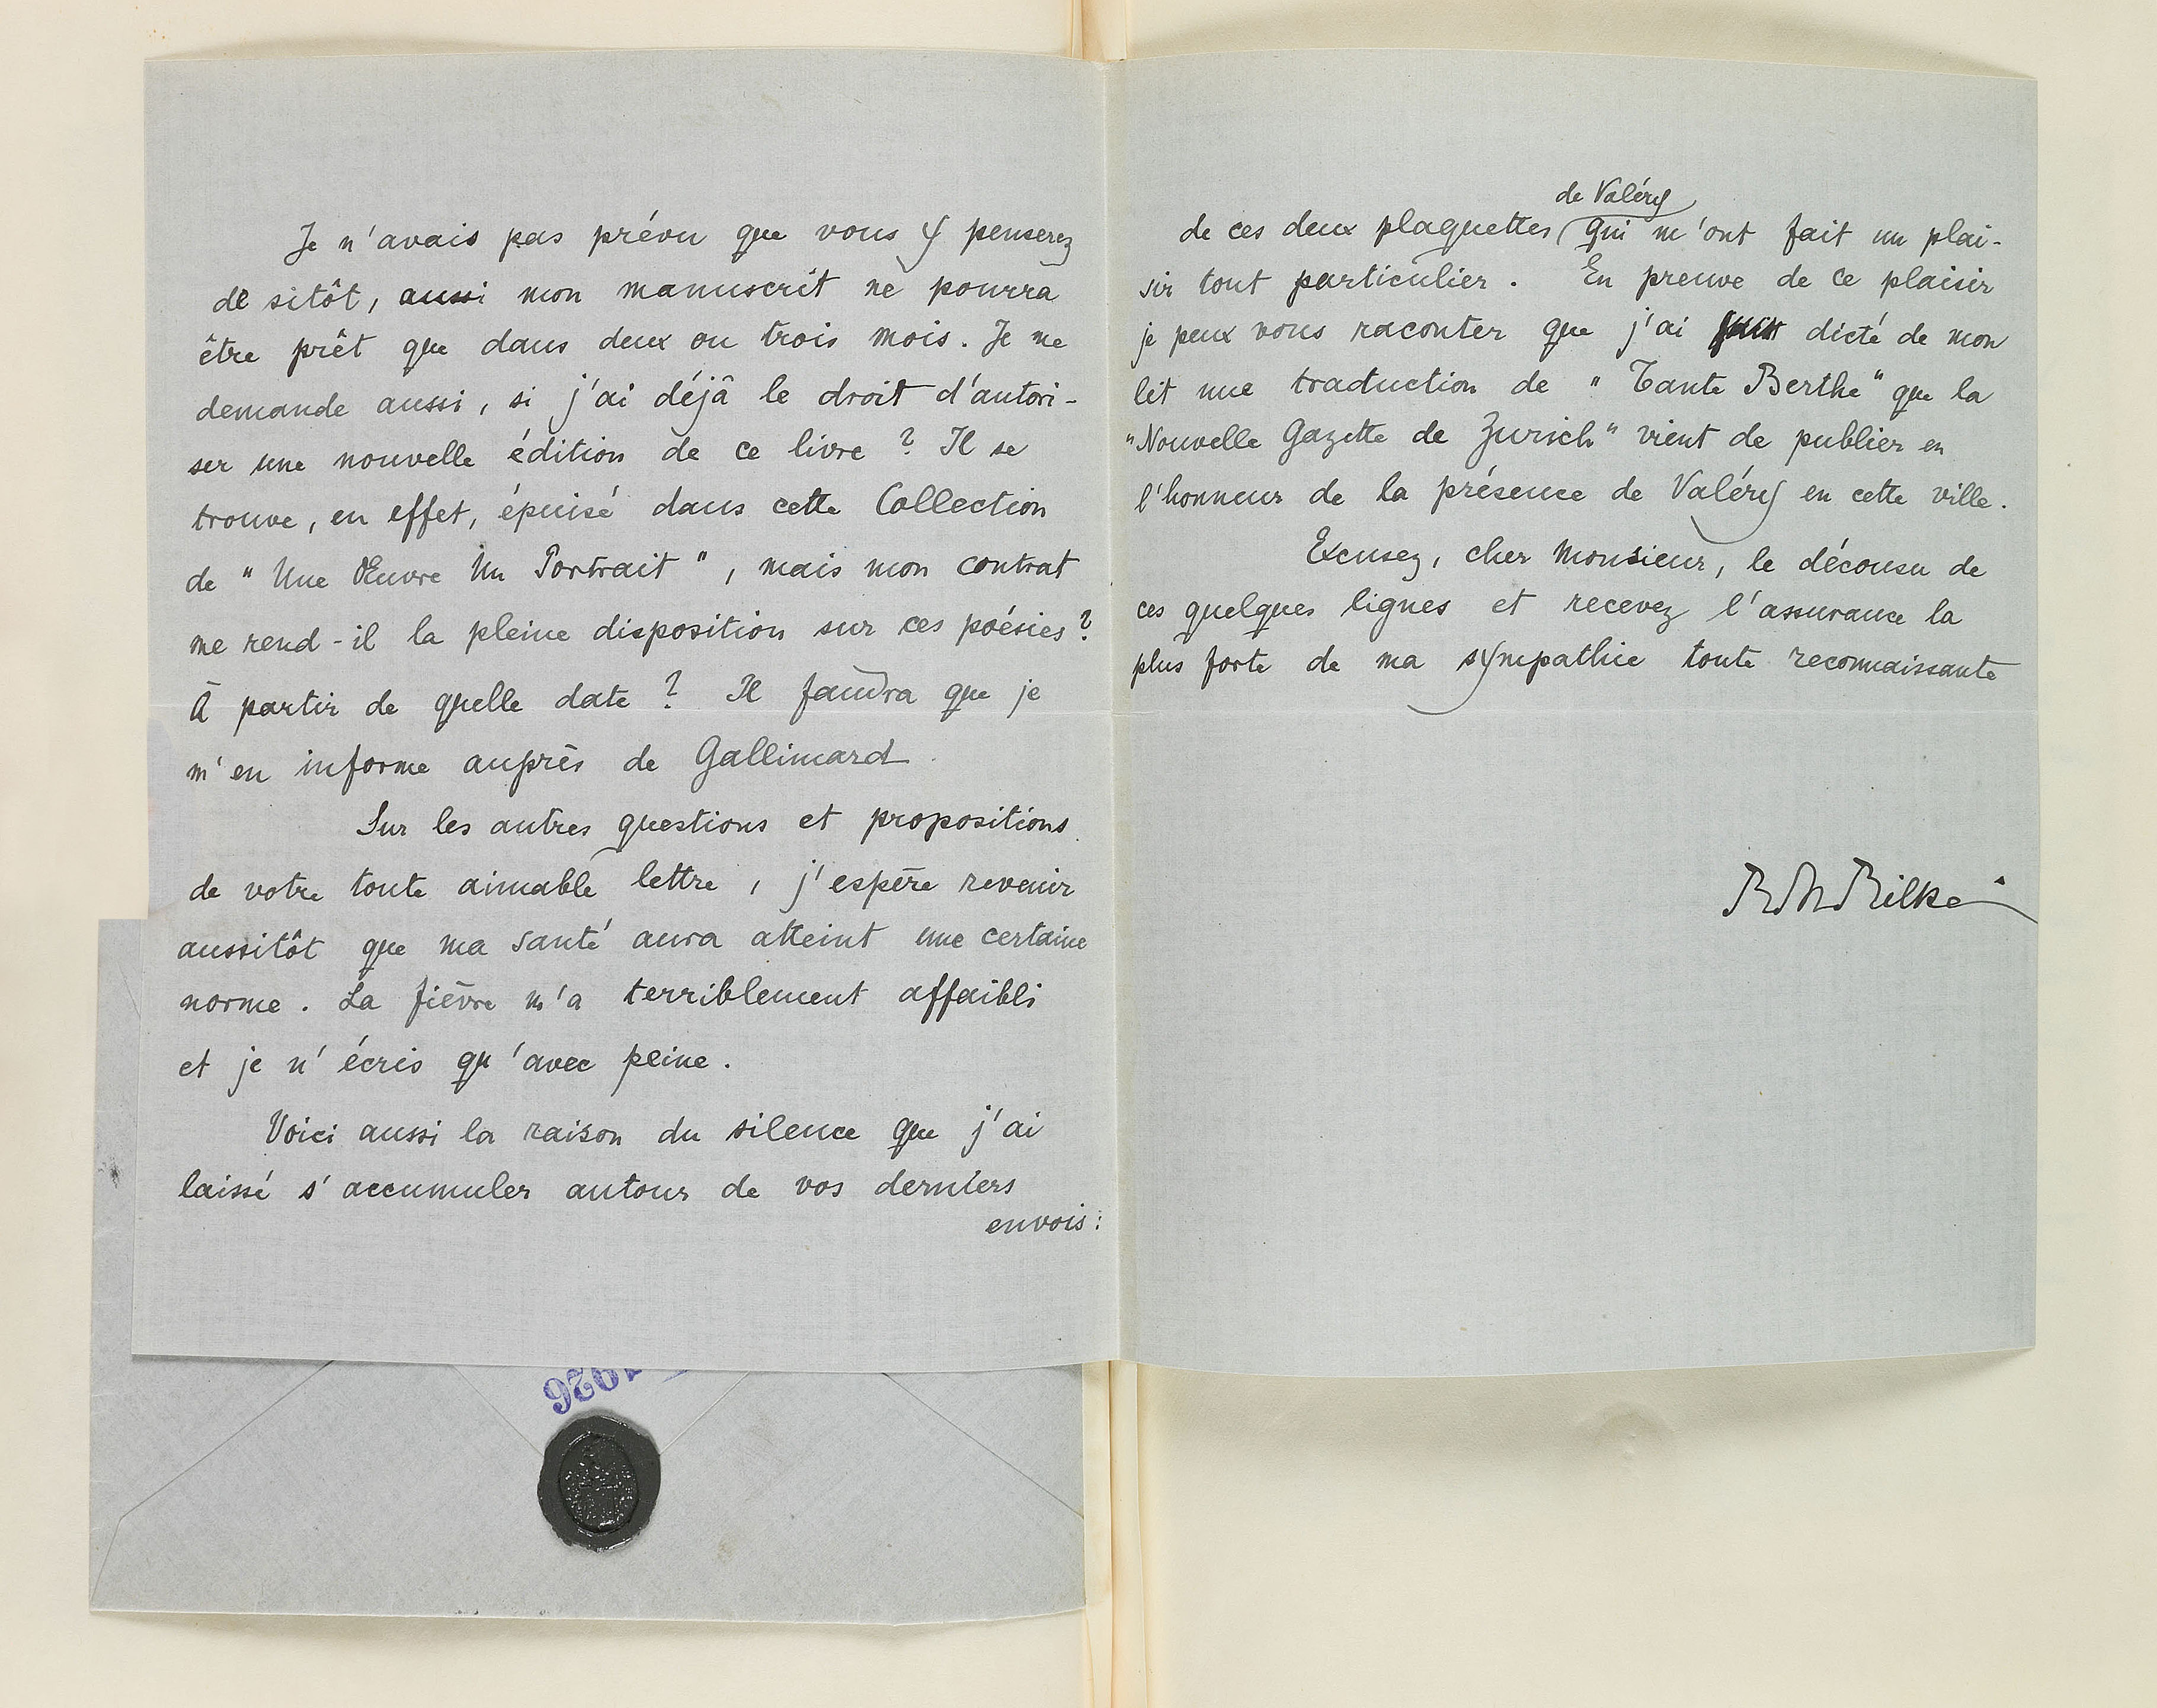 Je n'avais pas prévu que vous y penserez
de sitôt, aussi mon manuscrit ne pourra
être prêt que dans deux ou trois mois. Je ne
demande aussi, si j'ai déjà le droit d'autori-
ser une nouvelle édition de ce livre ? Il se
trouve, en effet, épuisé dans cette Collection
de "Une Œuvre Un Portrait", mais mon contrat
me rend-il la pleine disposition sur ces poésies ?
À partir de quelle date ? Il faudra que je
m'en informe auprès de Gallimard.
Sur les autres questions et propositions
de votre toute aimable lettre, j'espère revenir
aussitôt que ma santé aura atteint une certaine
norme. La fièvre m'a terriblement affaibli
et je n'écris qu'avec peine.
Voici aussi la raison du silence que j'ai
laissé s'accumuler autour de vos derniers
envois :
1926
de Valéry
de ces deux plaquettes qui m'ont fait un plai-
sir tout particulier. En preuve de ce plaisir
je peux vous raconter que j'ai dicté de mon
lit une traduction de "Tante Berthe" que la
"Nouvelle Gazette de Zurich" vient de publier en
l'honneur de la présence de Valéry en cette ville.
Excusez, cher Monsieur, le décousu de
ces quelques lignes et recevez l'assurance la
plus forte de ma sympathie toute reconnaissante
RMRilke